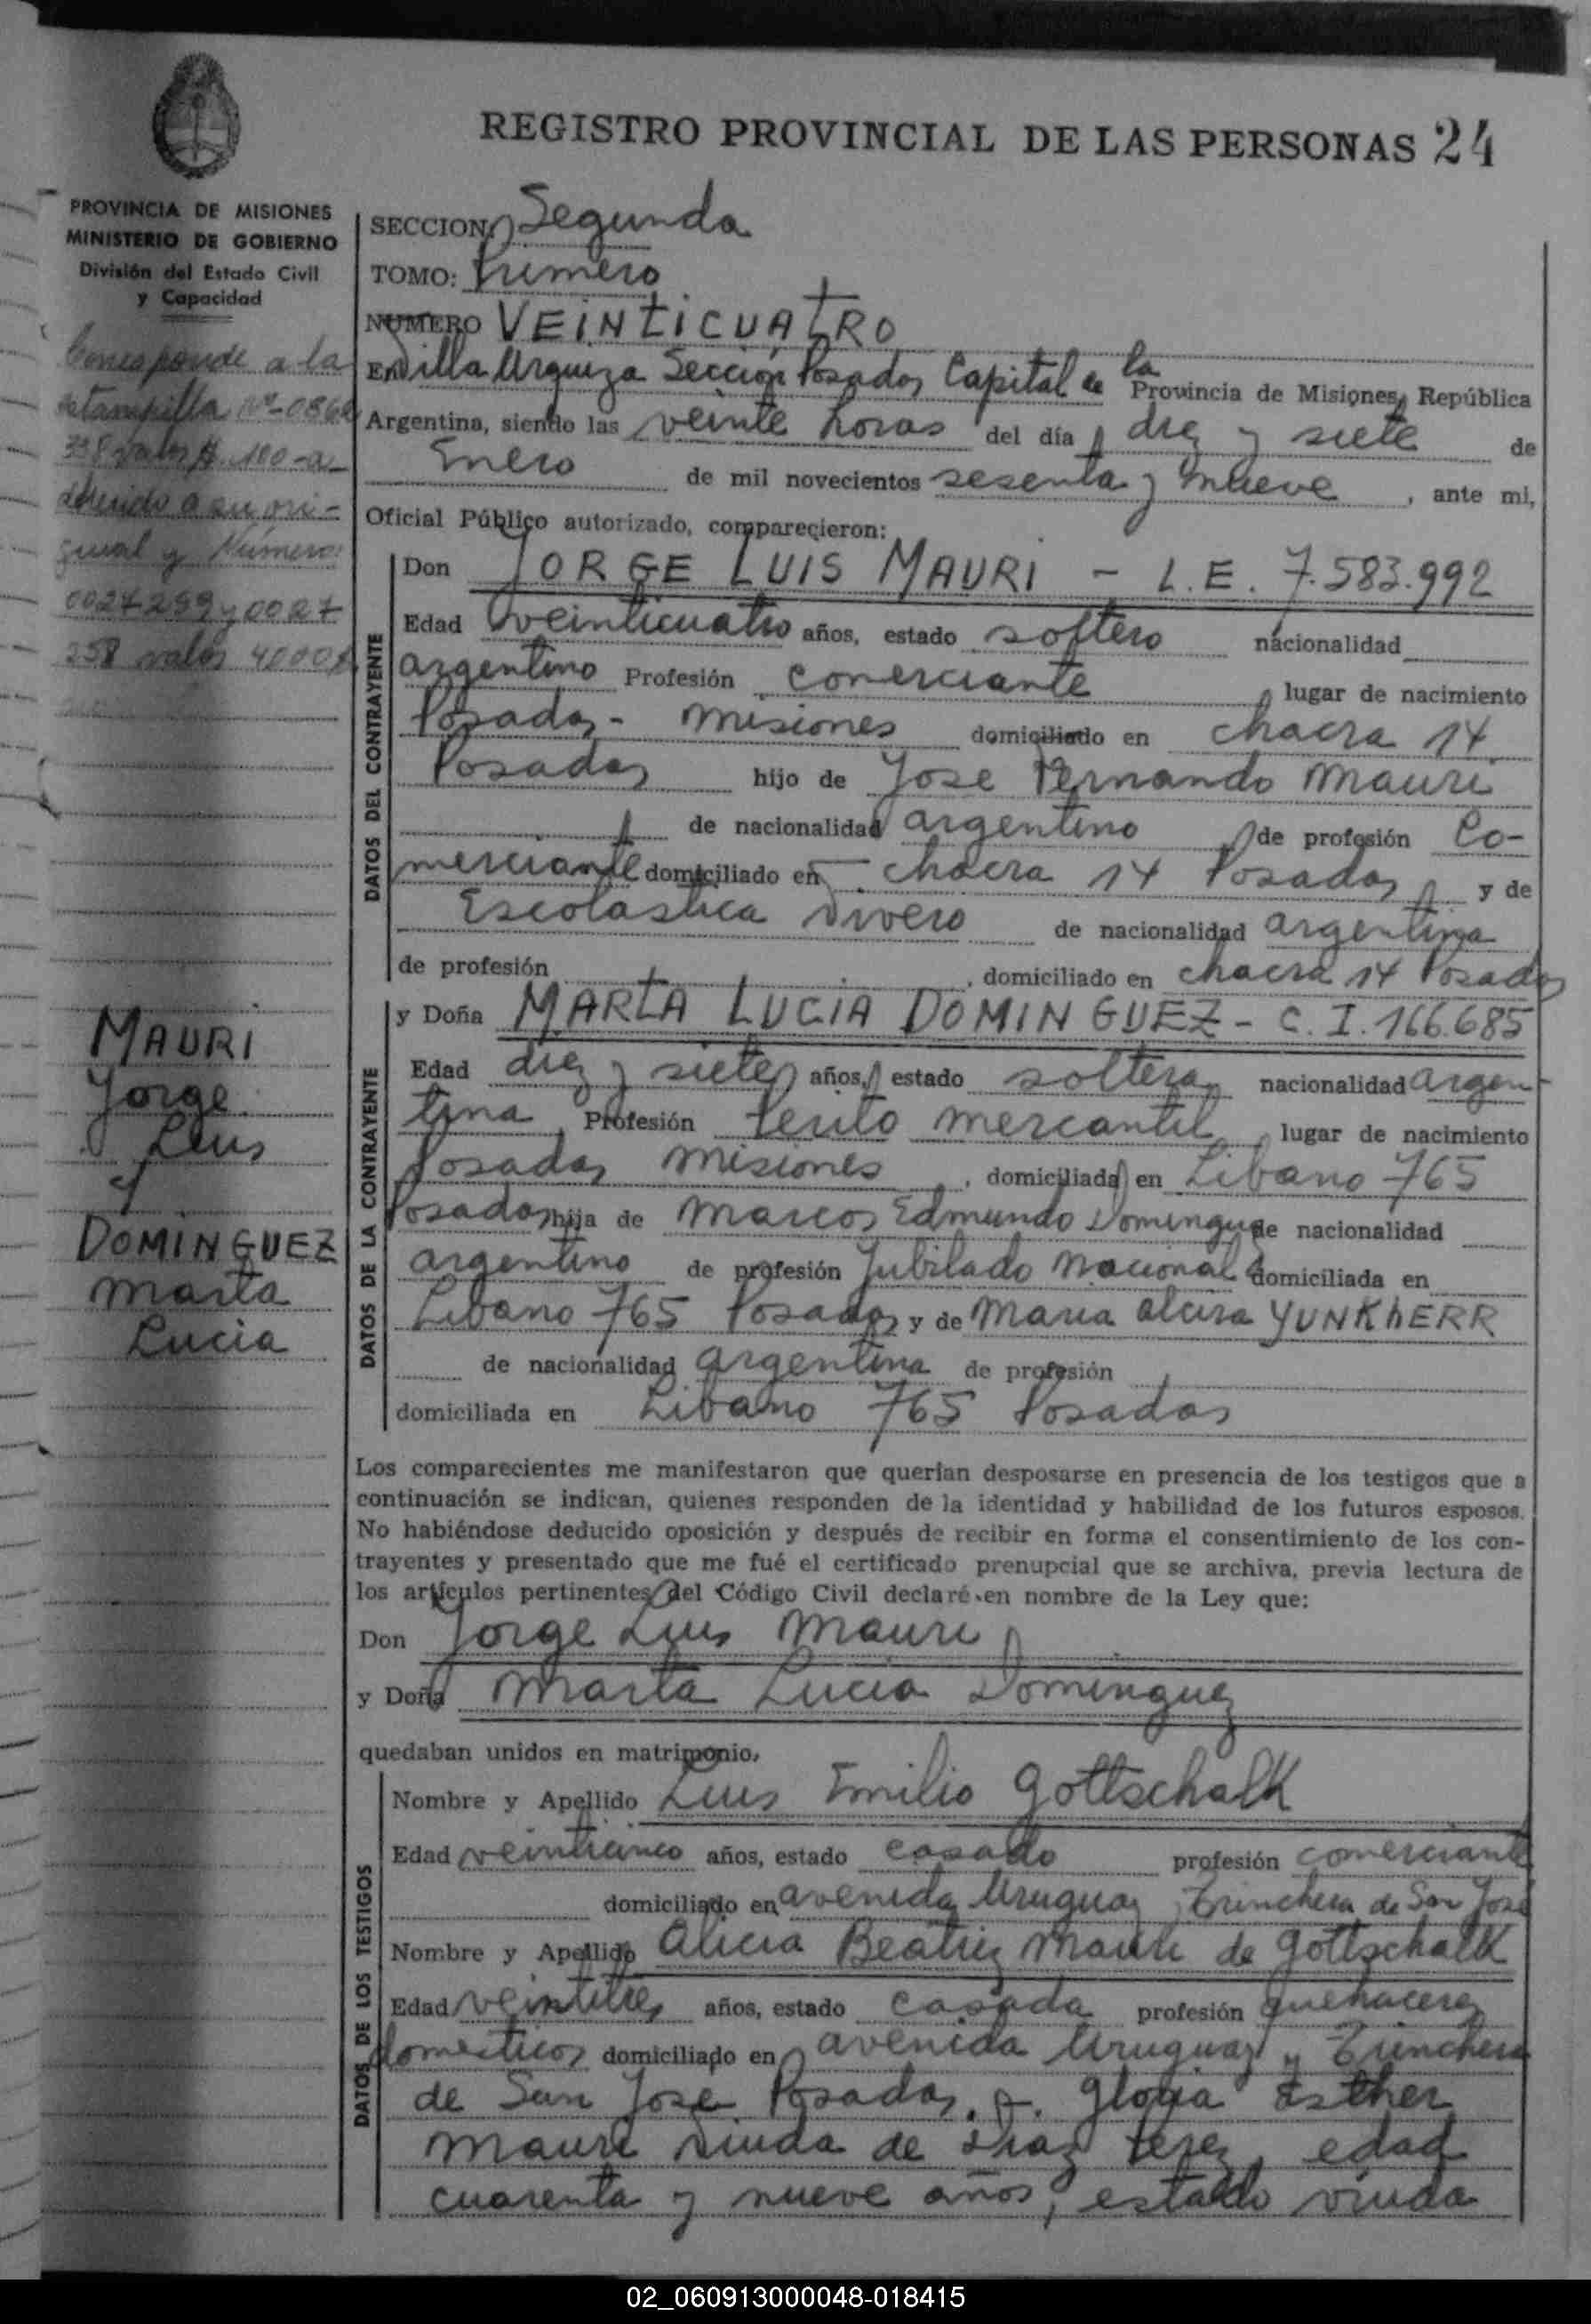 REGISTRO PROVINCIAL DE LAS PERSONAS 24
PROVINCIA DE MISIONES
MINISTERIO DE GOBIERNO
División del Estado Civil
y Capacidad
Corresponde a la
estampilla Nº 0868
338 valor $ 100 - a-
dherido a su ori-
ginal y Número:
0027299 y 0027
258 valor 4000$
MAURI
Jorge
Luis
y
DOMINGUEZ
Marta
Lucia
SECCION Segunda
TOMO: Primero
NUMERO VEINTICUATRO
En Villa Urquiza Sección Posadas Capital de la Provincia de Misiones, República
Argentina, siendo las veinte horas del día diez y siete de
Enero de mil novecientos sesenta y nueve, ante mi,
Oficial Público autorizado, comparecieron:
DATOS DEL CONTRAYENTE
Don JORGE LUIS MAURI - L.E. 7.583.992
Edad veinticuatro años, estado soltero nacionalidad
argentino Profesión comerciante lugar de nacimiento
Posadas - Misiones domiciliado en chacra 14
Posadas hijo de Jose Fernando Mauri
de nacionalidad argentino de profesión Co-
merciante domiciliado en chacra 14 Posadas y de
Escolastica Vivero de nacionalidad argentina
de profesión, domiciliado en chacra 14 Posadas
DATOS DE LA CONTRAYENTE
y Doña MARTA LUCIA DOMINGUEZ - C.I. 166.685
Edad diez y siete años, estado soltera nacionalidad argen-
tina Profesión Perito mercantil lugar de nacimiento
Posadas Misiones, domiciliada en Libano 765
Posadas hija de Marcos Edmundo Dominguez de nacionalidad
argentino de profesión Jubilado Nacional domiciliada en
Libano 765 Posadas y de Maria Alcira YUNKhERR
de nacionalidad argentina de profesión
domiciliada en Libano 765 Posadas
Los comparecientes me manifestaron que querían desposarse en presencia de los testigos que a
continuación se indican, quienes responden de la identidad y habilidad de los futuros esposos.
No habiéndose deducido oposición y después de recibir en forma el consentimiento de los con-
trayentes y presentado que me fué el certificado prenupcial que se archiva, previa lectura de
los artículos pertinentes del Código Civil declaré en nombre de la Ley que:
Don Jorge Luis Mauri
y Doña Marta Lucia Dominguez
quedaban unidos en matrimonio.
DATOS DE LOS TESTIGOS
Nombre y Apellido Luis Emilio Gottschalk
Edad veinticinco años, estado casado profesión comerciante
domiciliado en avenida Uruguay Trinchera de San José
Nombre y Apellido Alicia Beatriz Mauri de Gottschalk
Edad veintitres años, estado casada profesión quehaceres
domesticos domiciliado en avenida Uruguay y Trinchera
de San Jose Posadas. Gloria Esther
Mauri viuda de Diaz Perez, edad
cuarenta y nueve años, estado viuda
02_060913000048-018415